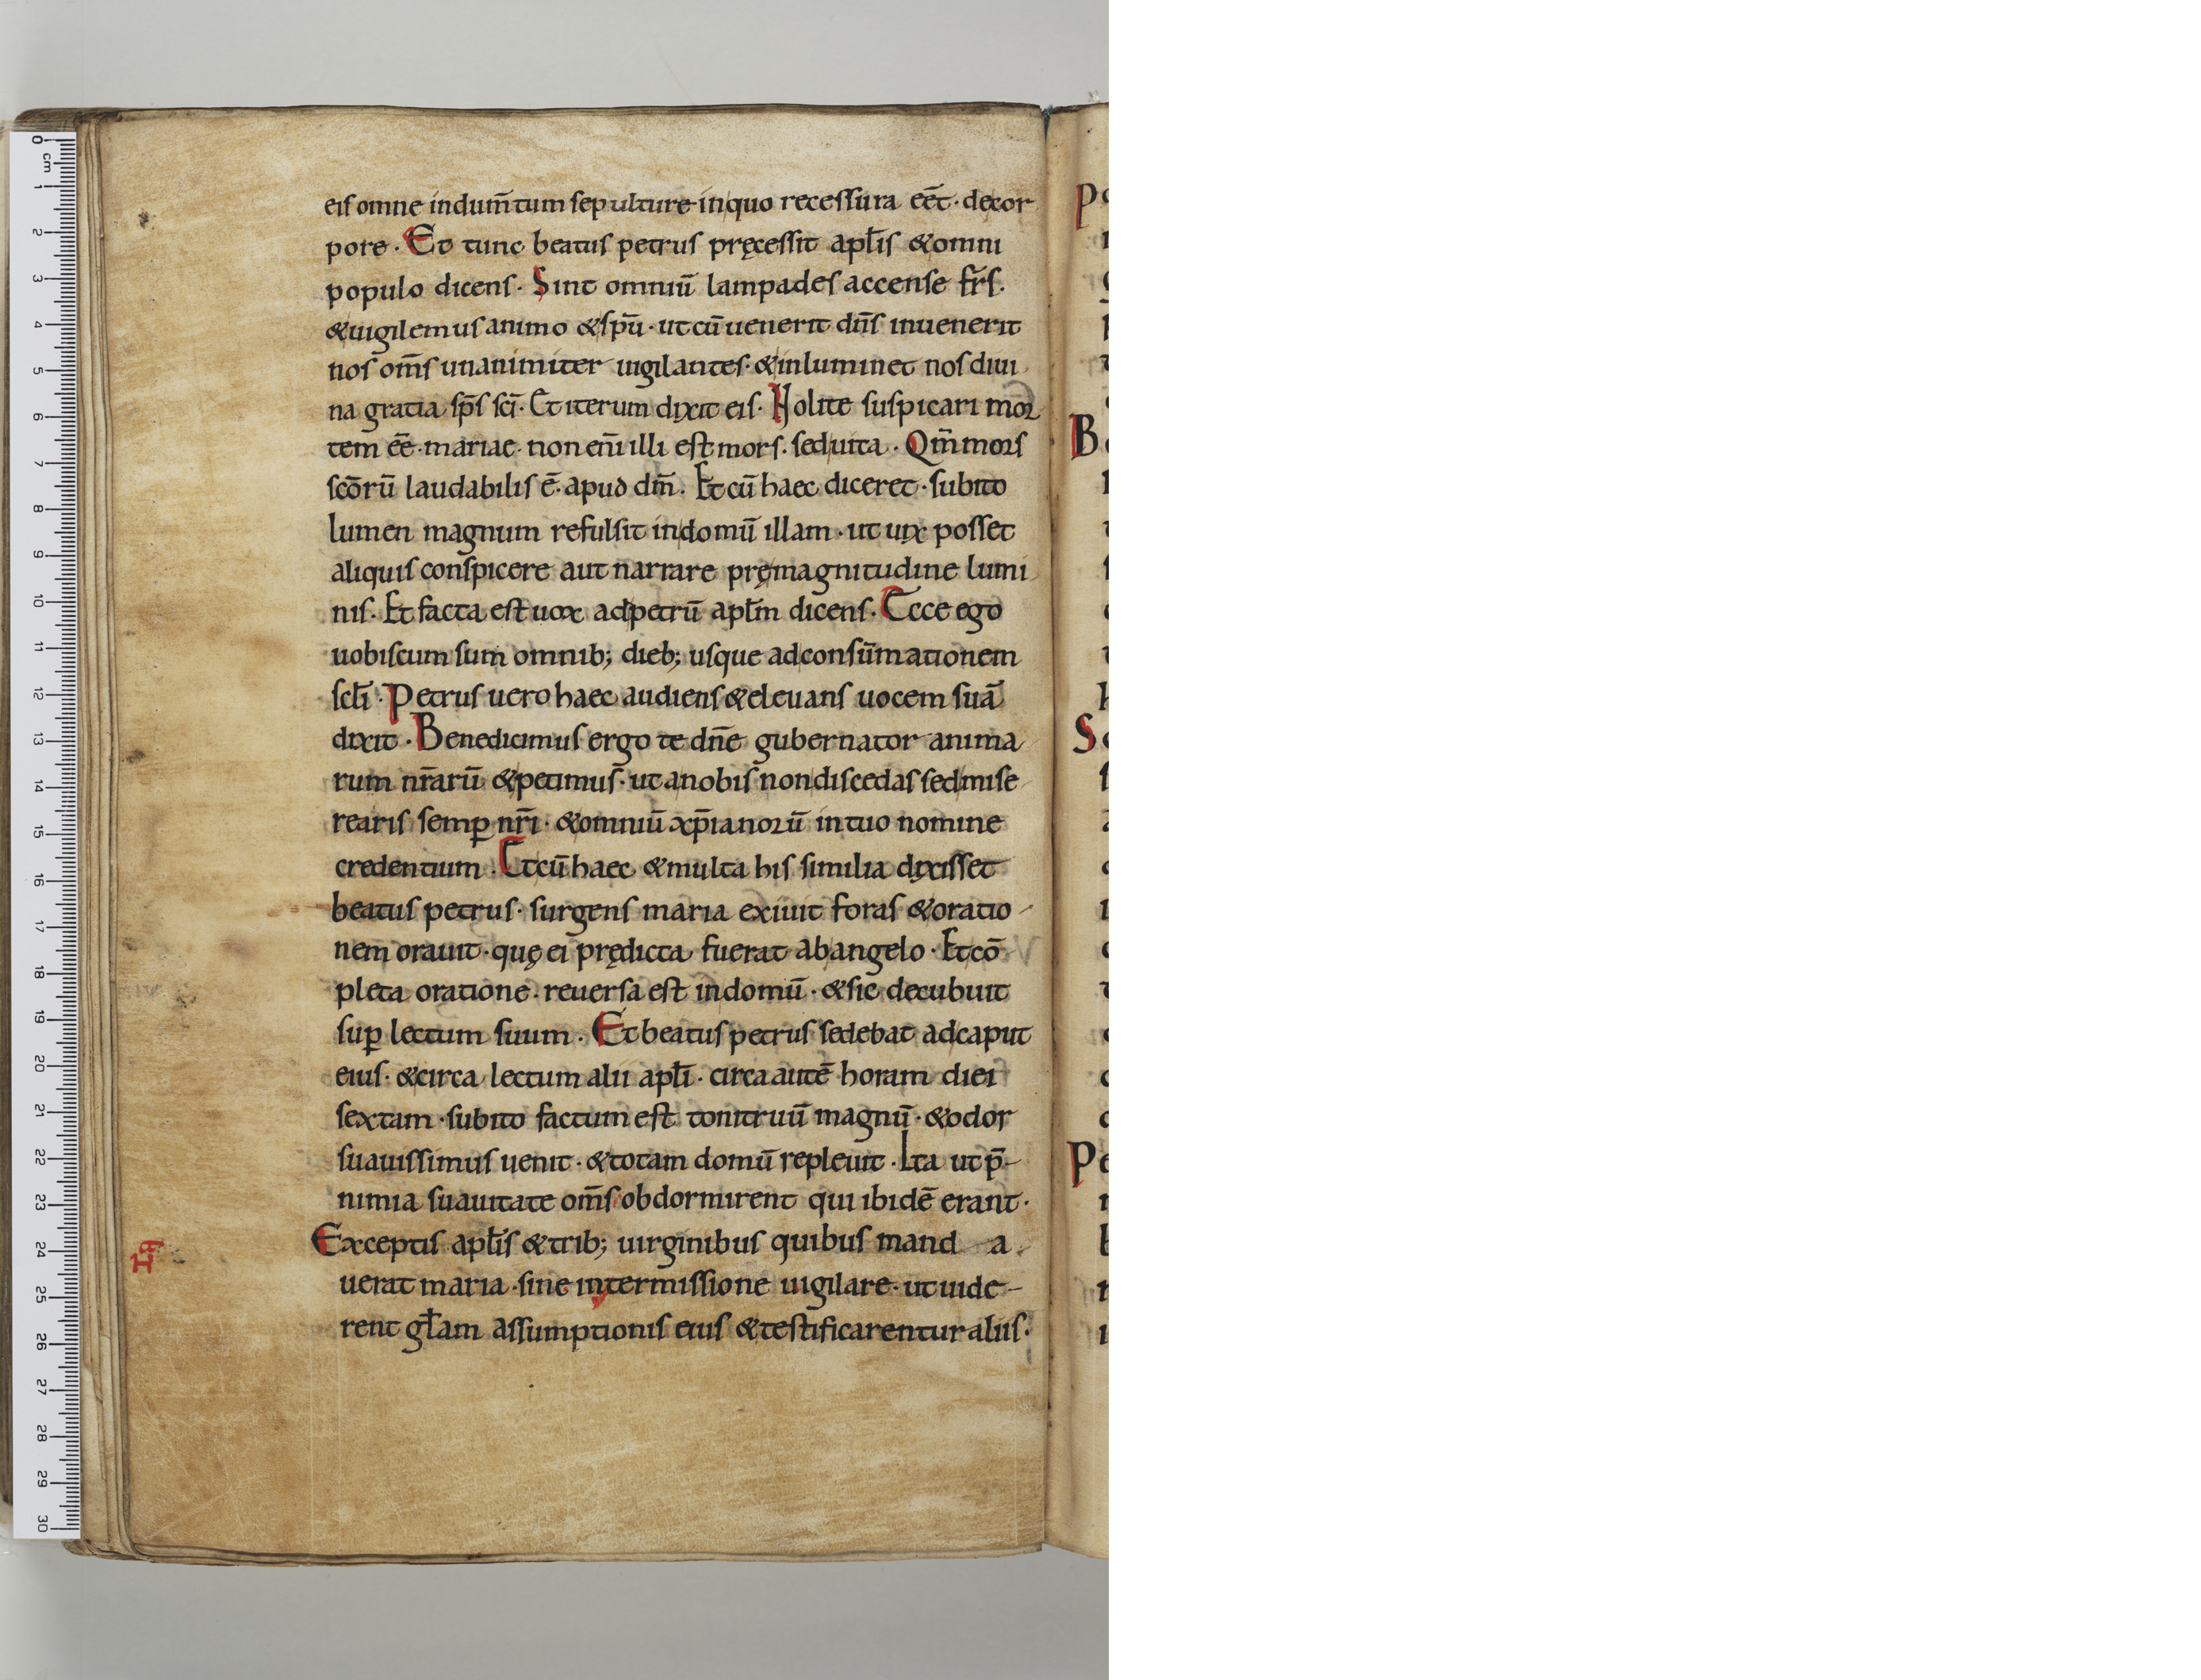 eiſ omne indum̄tum ſepulture inquo receſſura eēt · decor
pore · Et tunc beatuſ petruſ pręceſſit apl̄iſ &omni
populo dicenſ · Sint omniū lampadeſ accenſe fr̄ſ.
&uigilemuſ animo &ſpū · ut cū uenerit dn̄ſ inuenerit
noſ om̄ſ unanimiter uigilanteſ · &inluminet noſ diui
na gratia ſp̄ſ ſc̄i · Et iterum dixit eiſ · Nolite ſuſpicari mor
tem ēē · mariae · non eni̅ illi eſt morſ · ſed uita · Qm̄ morſ
ſcōrū laudabiliſ ē · apud dm̄ · Et cū haec diceret · ſubito
lumen magnum refulſit in domū illam · ut uix poſſet
aliquiſ conſpicere aut narrare prę magnitudine lumi
niſ · Et facta eſt uox ad petrū apl̄m dicenſ · Ecce ego
uobiſcum ſum omnib; dieb; uſque ad conſūmationem
ſcl̄i · Petruſ uero haec audienſ &eleuanſ uocem ſuā
dixit · Benedicimuſ ergo te dn̄e gubernator anima
rum nr̄arū &petimuſ · ut a nobiſ non diſcedaſ ſed miſe
reariſ ſemꝑ nr̄i · &omniū xp̄ianorū in tuo nomine
credentium · Et cū haec &multa hiſ ſimilia dixiſſet
beatuſ petruſ · ſurgenſ maria exiuit foraſ &oratio
nem orauit · quę ei prędicta fuerat ab angelo · Et cō
pleta oratione · reuerſa eſt in domū · &ſic decubuit
ſuꝑ lectum ſuum · Et beatuſ petruſ ſedebat ad caput
eiuſ · &circa lectum alii apl̄i · circa autē horam diei
ſextam · ſubito factum eſt tonitruū magnū · &odor
ſuauiſſimuſ uenit · &totam domū repleuit · Ita ut p̄
nimia ſuauitate om̄ſ obdormirent qui ibidē erant ·
Exceptiſ apl̄iſ &trib; uirginibuſ quibuſ mand a
uerat maria · ſine intermiſſione uigilare · ut uide
rent gl̄am aſſumptioniſ eiuſ &teſtificarentur aliiſ ·